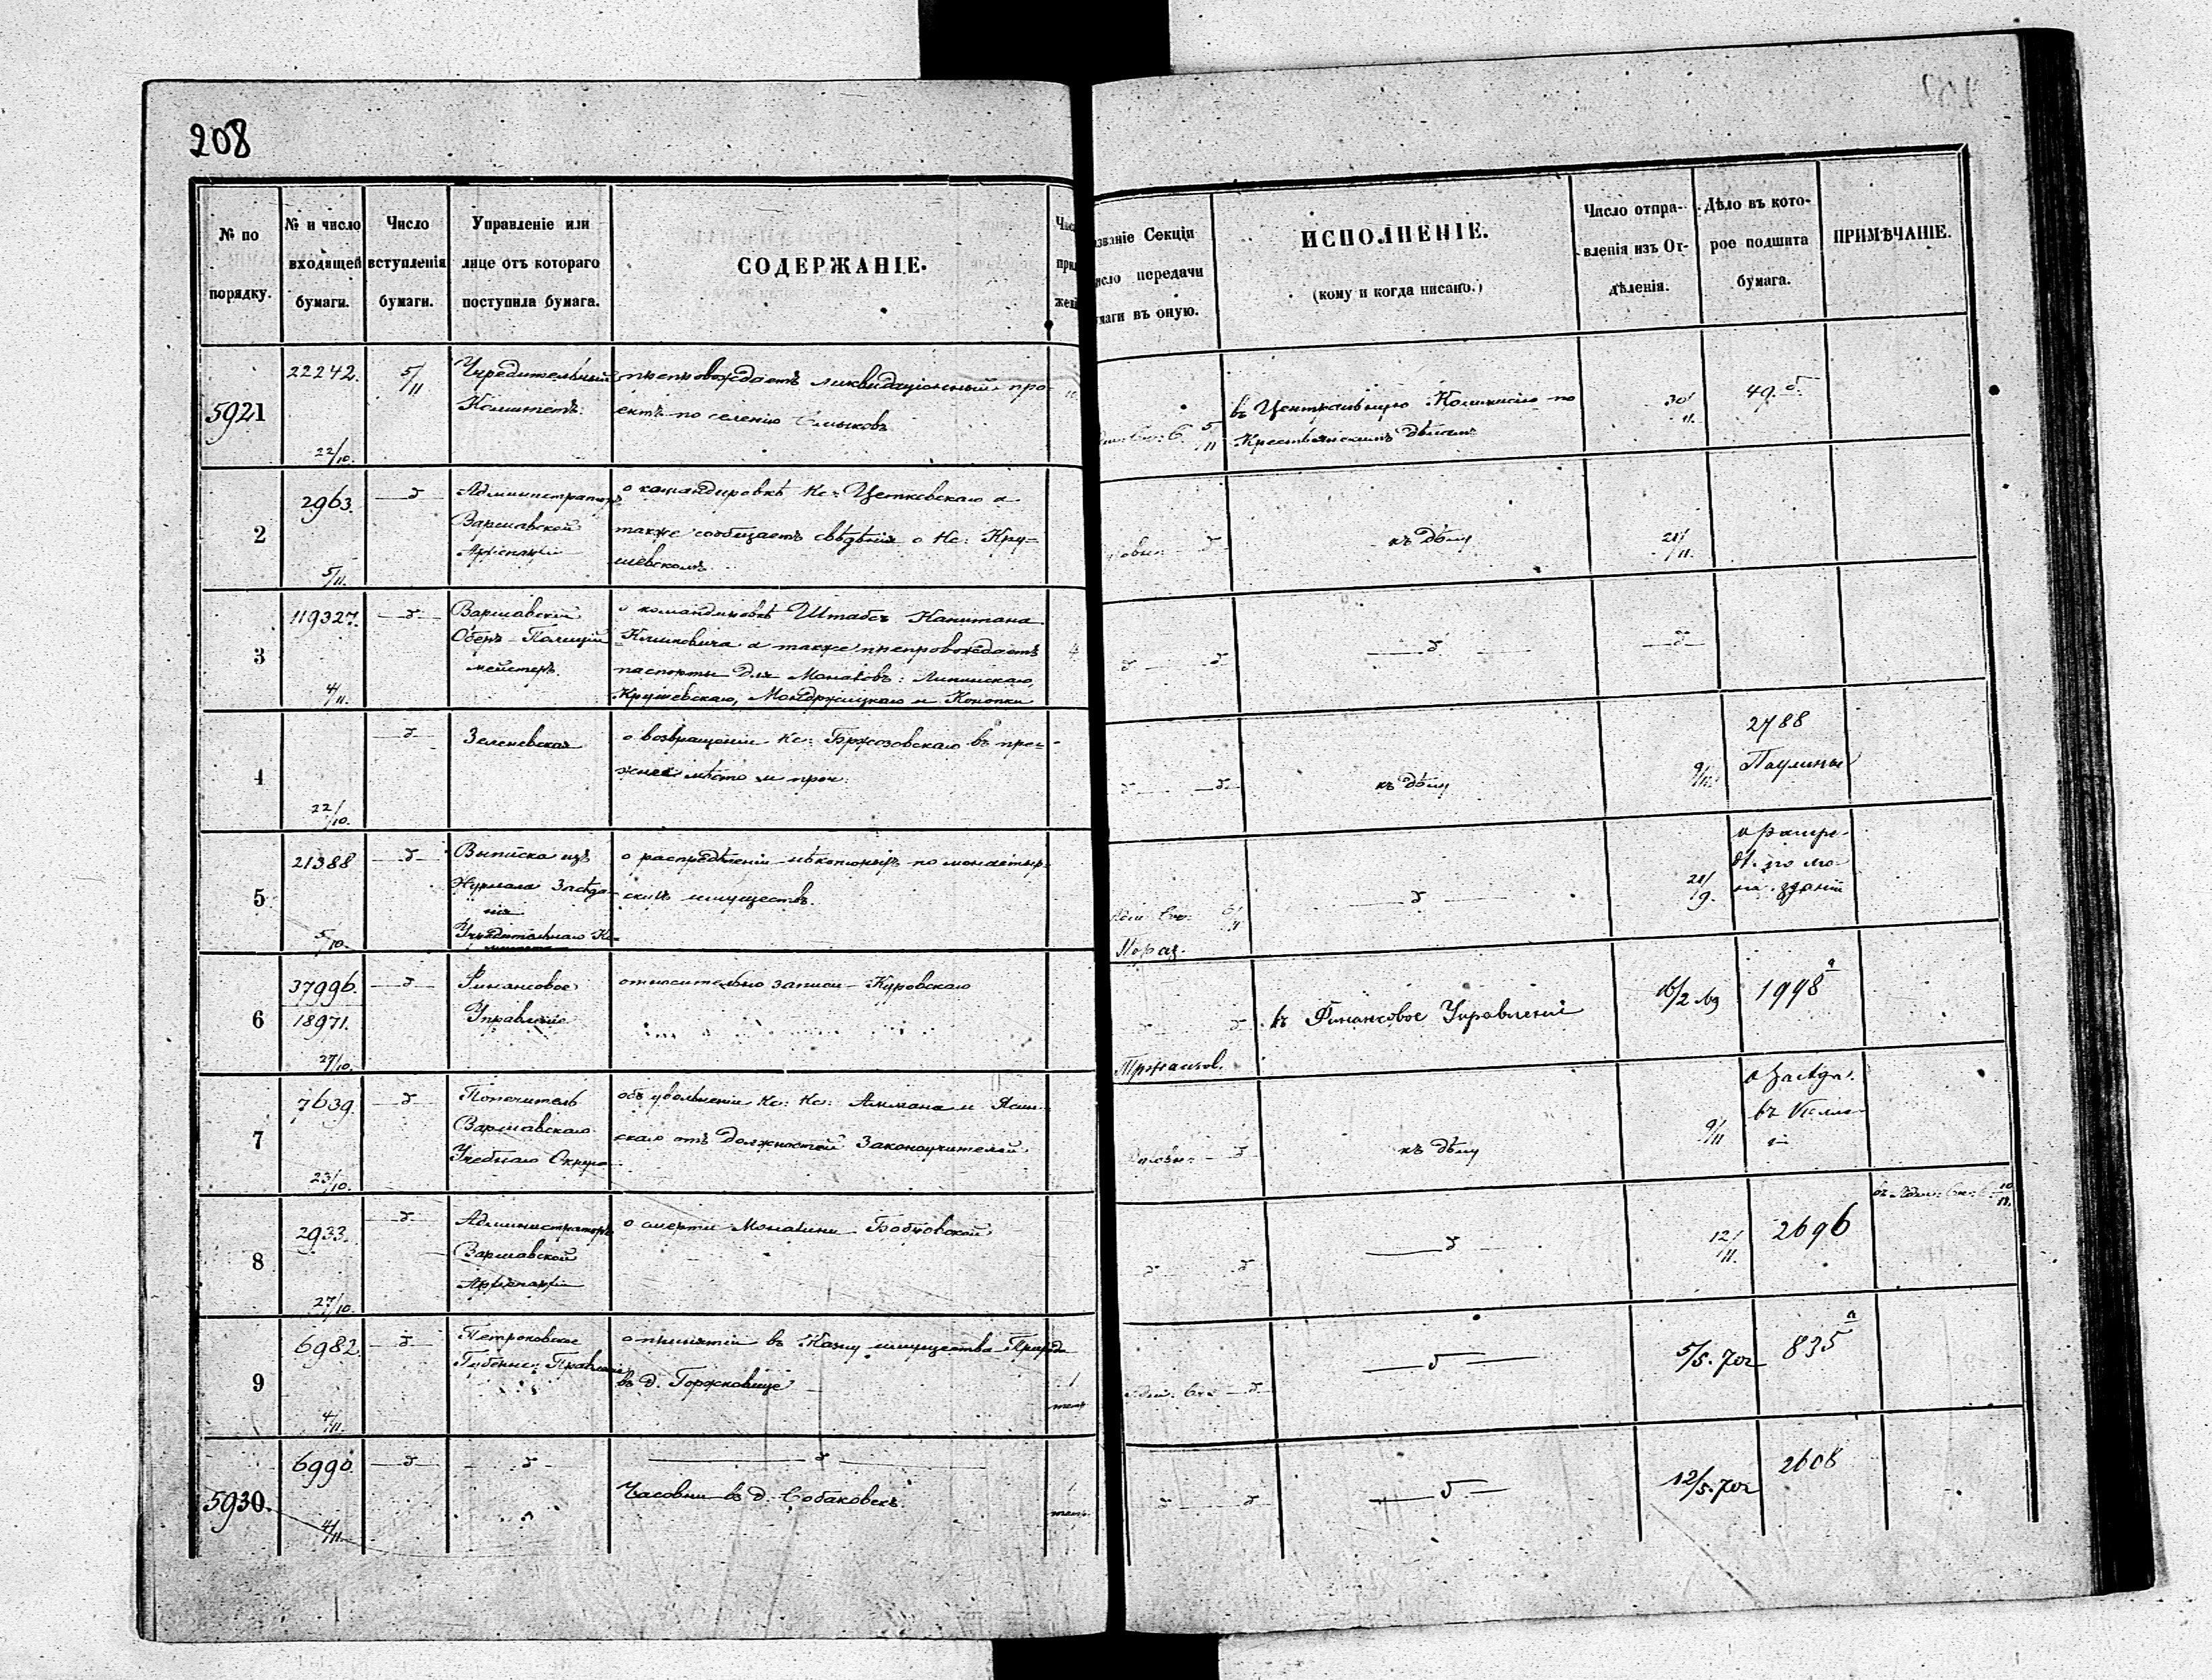 208
№ по порядку.
№ и число входящей бумаги.
Число вступленія бумаги.
Управленіе или лице отъ котораго поступила бумага.
СОДЕРЖАНІЕ.
званіе Секціи
исло передачи
маги въ оную.
ИСПОЛНЕНІЕ.
(кому и когда писано.)
Число отправленія изъ Отдѣленія.
Дѣло въ которое подшита бумага.
ПРИМѢЧАНІЕ.
5921
22242.
22/10.
5/11
Учредительный
Комитетъ.
препровождаетъ ликвидаціонный про-
ектъ по селенію
5/11
въ Центральную Коммисію по
Крестьянскимъ дѣламъ
30/11.
49.б.
2
2963.
5/11.
Администраторъ
Варшавской
Архіепархіи
о командировкѣ Кс: Цетковскаго а
также сообщаетъ свѣдѣнія о Кс: Кру-
шевскомъ
къ дѣлу
21/11.
3
119327.
4/11.
Варшавскій
Оберъ-Полицій
мейстеръ.
о командировкѣ Штабсъ Капитана
Климовича а также препровождаетъ
паспорты для Монаховъ: Липинскаго,
Крушевскаго, Мондржицкаго и Конопки
4
4
22/10.
Зеленевская
о возвращеніи Кс: Бржозовскаго въ преж-
нее мѣсто и проч.
къ дѣлу
9/11.
2788
Паулины
5
21388
5/10.
Выписка изъ
Журнала Засѣда-
нія
Учредительнаго Ко-
митета
о распредѣленіи нѣкоторыхъ по монастыр-
скихъ имуществъ.
5/11
21/9.
о распре-
дѣ. по мо-
на. зданій
6
37996.
18971.
27/10.
Финансовое
Управленіе
относительно записи Куровскаго
въ Финансовое Управленіе
16/2 69
1998 а
7
7639.
23/10.
Попечитель
Варшавскаго
Учебнаго Округа
объ увольненіи Кс: Кс: Аммана и Ясин-
скаго отъ должностей Законоучителей
къ дѣлу
9/11
8
2933.
27/10.
Администраторъ
Варшавской
Архіепархіи
о смерти Монахини Бобровской
12/11.
2696
въ Адм: Сек: 10/11.
9
6982.
4/11.
Петроковское
Губернс: Правленіе
о принятіи въ Казну имущества
въ д. Горжковице
1
тетр.
Адм: Сек
5/5. 70г
835 а
5930.
6990.
4/11
Часовни въ д. Собаковекъ.
1
тетр.
12/5. 70г
2608